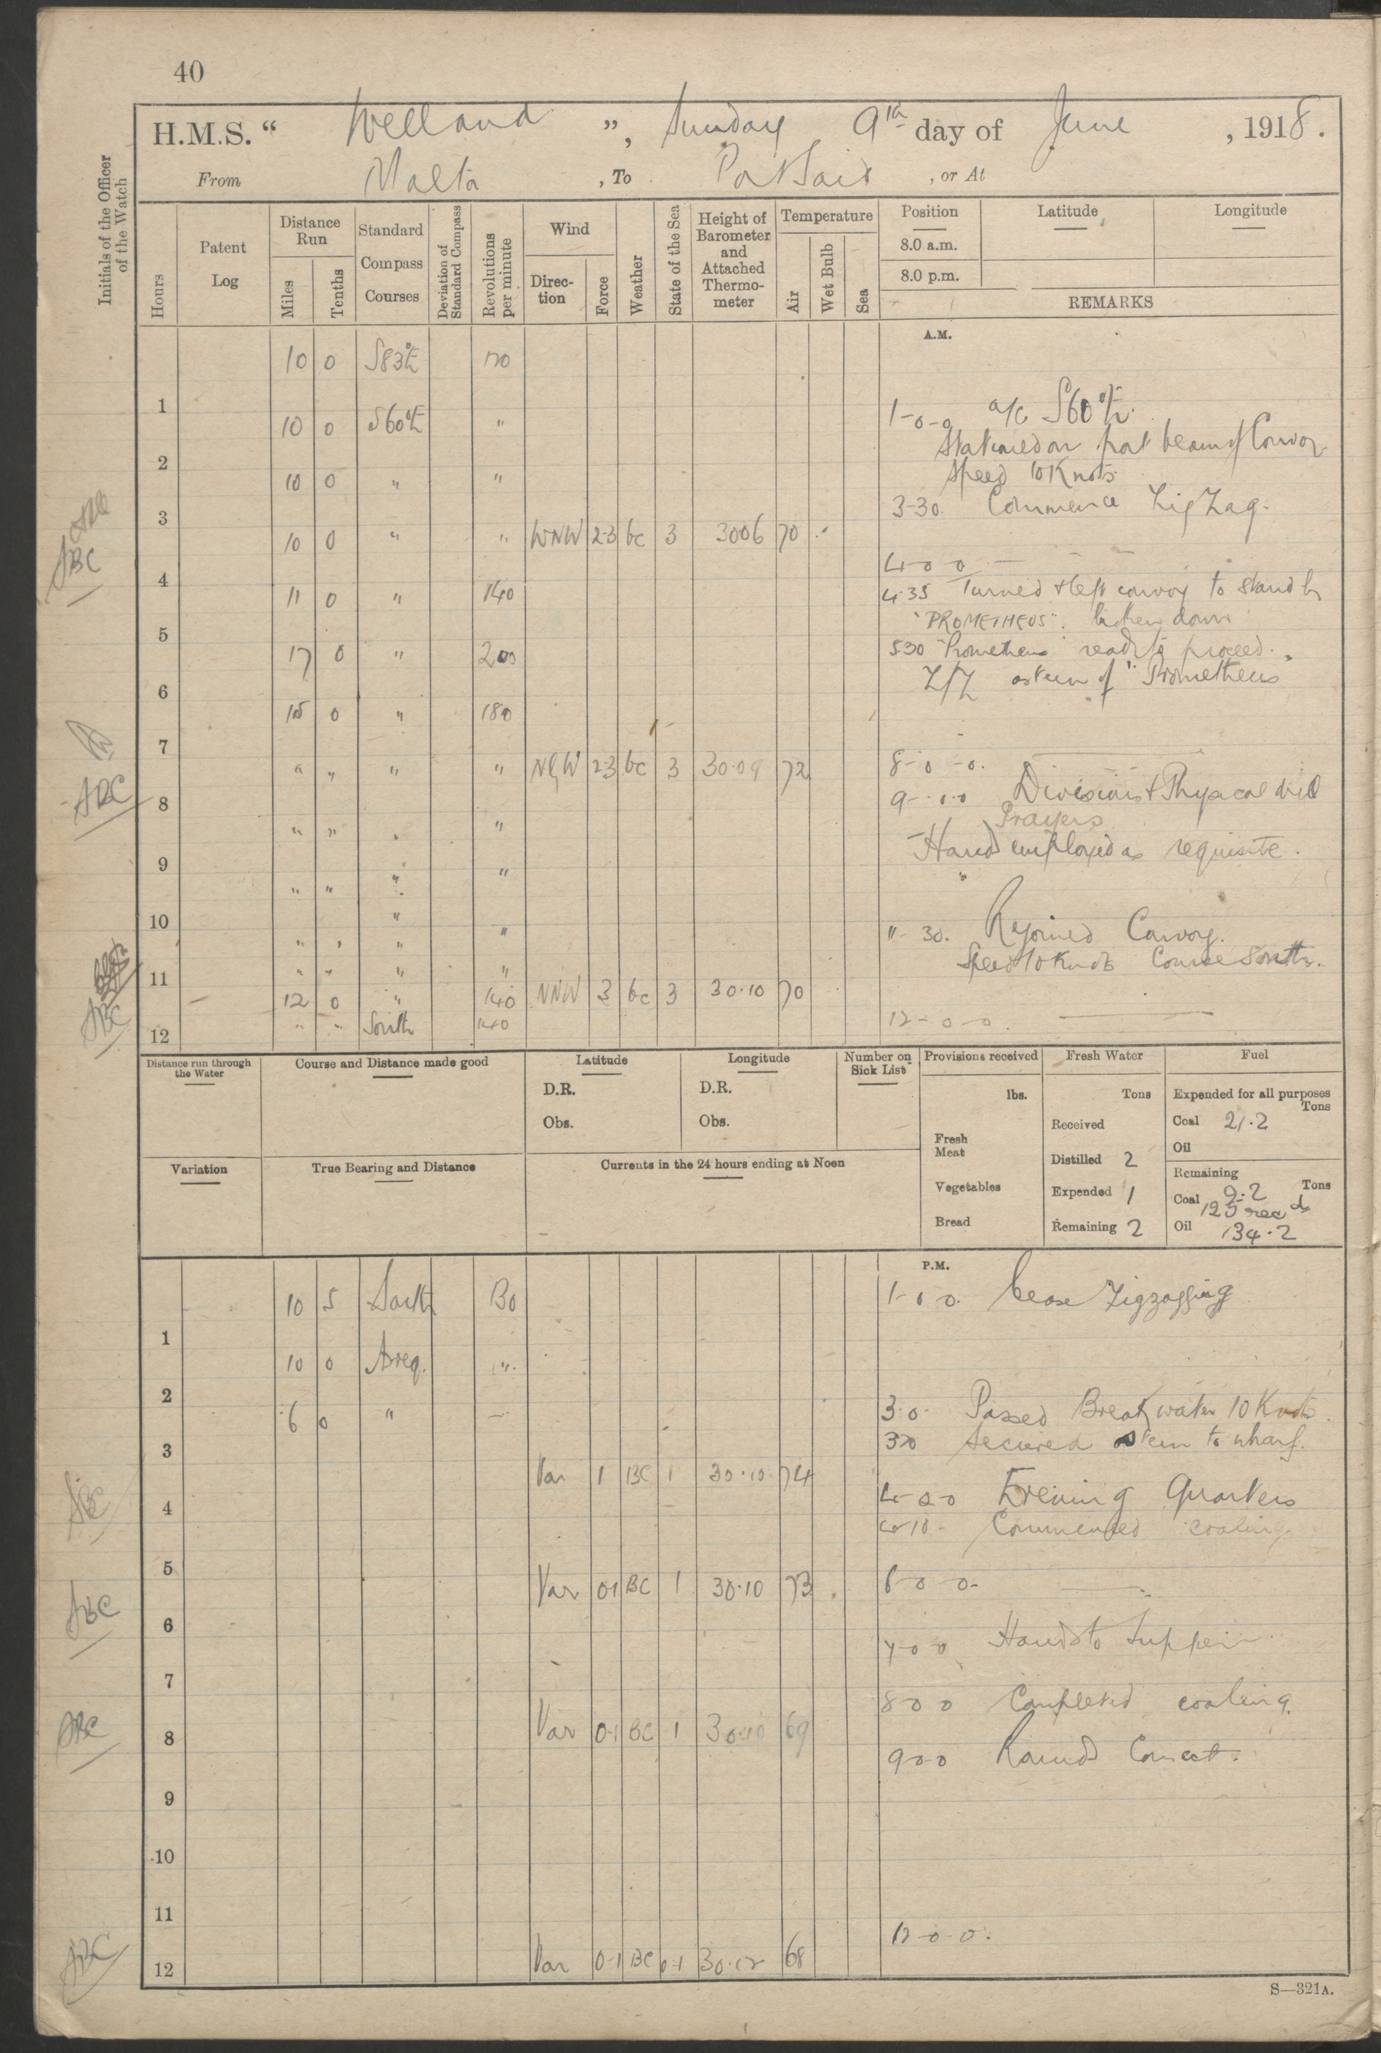 40
H.M.S. “ Welland ”, Sunday 9th day of June , 1918.
From Malta , To Port Said , or At
Initials of the Officer of the Watch
Hours
Patent Log
Distance Run
Miles
Tenths
Standard Compass Courses
Deviation of Standard Compass
Revolutions per minute
Wind
Direc-tion
Force
Weather
State of the Sea
Height of Barometer and Attached Thermo-meter
Temperature
Air
Wet Bulb
Sea
Position
Latitude
Longitude
8.0 a.m.
8.0 p.m.
REMARKS
A.M.
10 0 S83°E 120
1
10 0 S60°E " 1-0-0 a/c S60°E.
Stationed on port beam of Convoy
2
10 0 " " Speed 10 Knots
3-30 Commence Zig Zag.
3
10 0 " " WNW 2-3 bc 3 3006 70
ABC
4 4-0 0
11 0 " 140 4.35 Turned & left convoy to stand by
"PROMETHEUS". broken down
5
17 0 " 200 530 "Prometheus" ready to proceed.
Z/Z astern of "Prometheus"
6
15 0 " 180
7
" " " " 2-3 bc 3 30.09 72 8-0-0.
ABC
8 9-0-0 Divisions & Physical drill
Prayers
" " " "
Hands employed as requisite.
9
" " " "
10
" " " " 11-30. Rejoined Convoy.
Speed 10 Knots Course South.
11
" " " "
12 0 " 140 NNW 3 bc 3 30.10 70
ABC
" " South 140 12-0-0.
12
Distance run through the Water
Course and Distance made good
Latitude
D.R.
Obs.
Longitude
D.R.
Obs.
Number on Sick List
Provisions received
lbs.
Fresh Meat
Vegetables
Bread
Fresh Water
Tons
Received
Distilled 2
Expended 1
Remaining 2
Fuel
Expended for all purposes
Tons
Coal 21.2
Oil
Remaining
Tons
Coal 9.2
125 rec'd
Oil 134.2
Variation
True Bearing and Distance
Currents in the 24 hours ending at Noon
P.M.
10 5 South 130 1-0 0. Cease Zigzagging
1
10 0 As req. "
2
6 0 " 3.0. Passed Breakwater 10 Knots.
330 Secured stern to wharf.
3
Var 1 BC 1 30.10 74 4-0-0 Evening Quarters
ABC
4 4-10- Commenced coaling.
5
Var 0-1 BC 1 30.10 73 6-0 0-
ABC
6
7-0 0 Hands to Supper
7
8 0 0 Completed coaling.
Var 0-1 BC 1 30.10 69
ABC
8
9 0-0 Rounds Correct.
9
10
11
12-0-0.
Var 0-1 BC 0-1 30.12 68
ABC
12
S—321A.